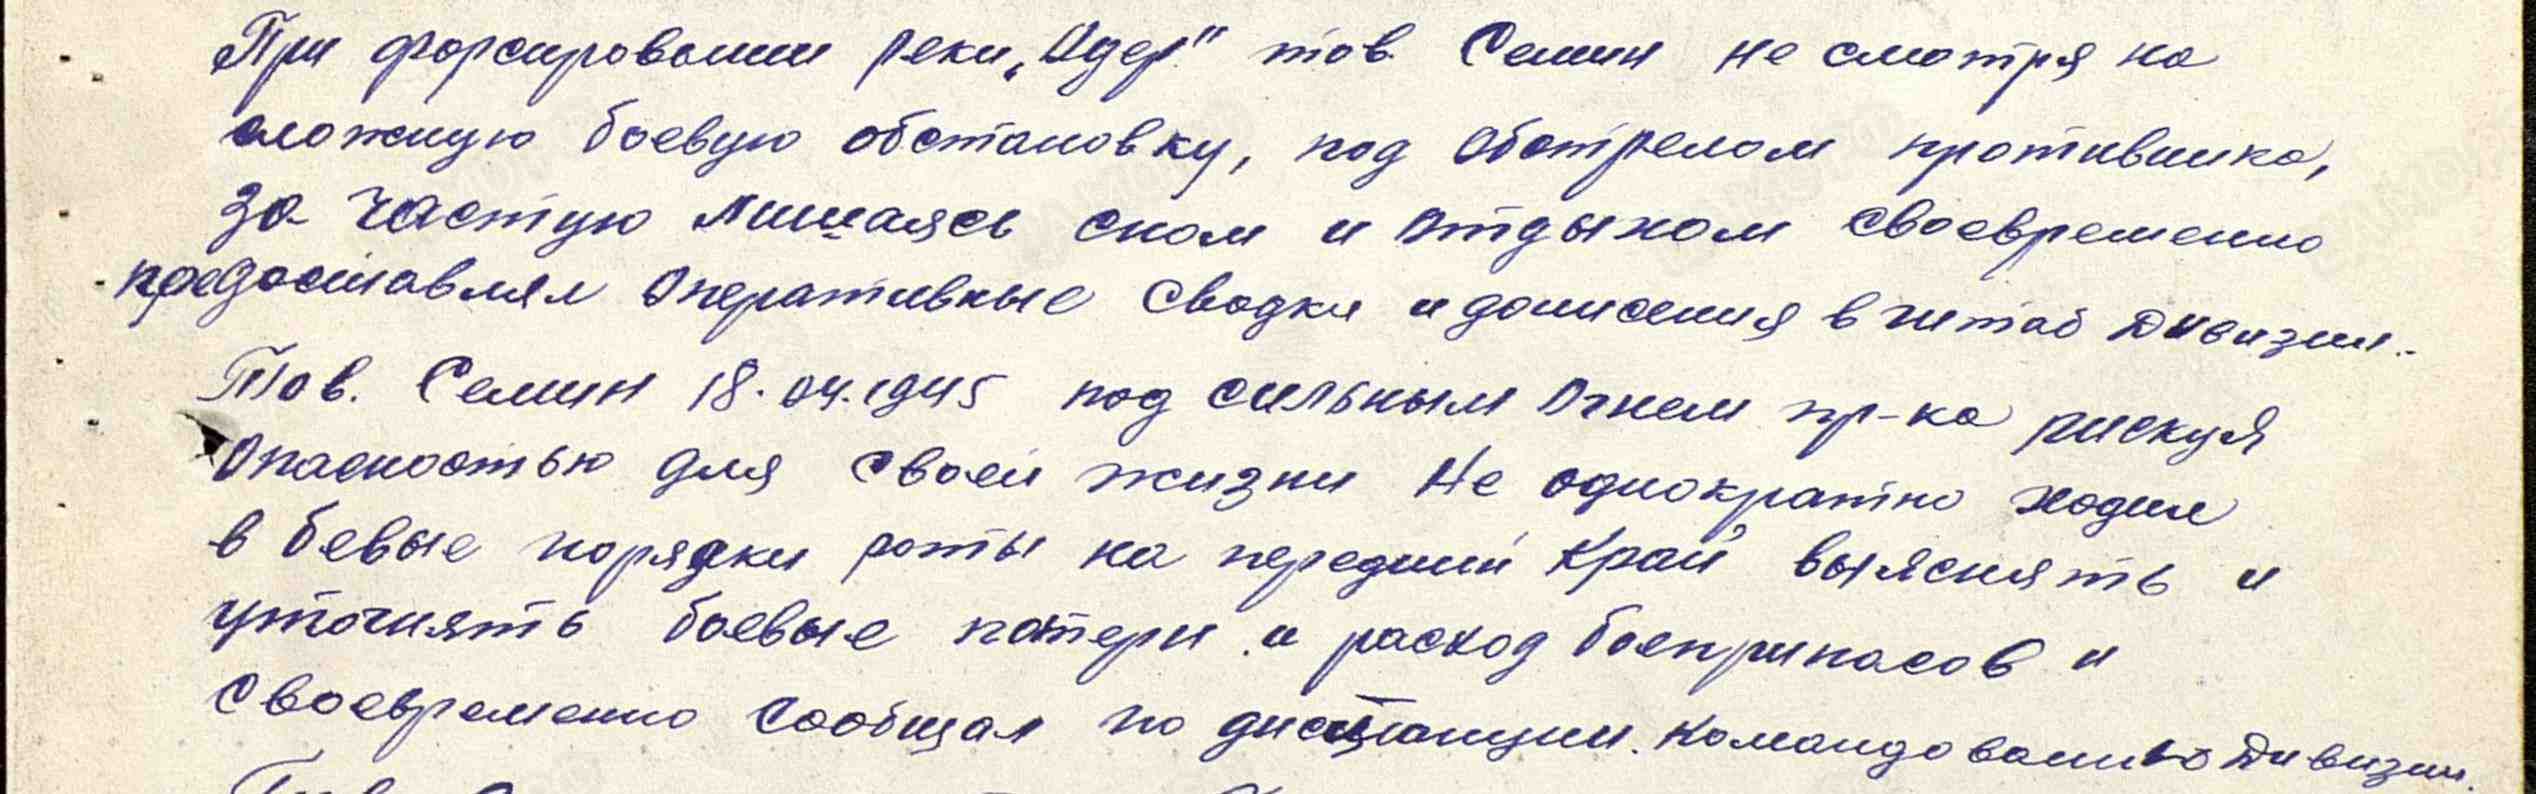 При форсировании реки „Одер" тов. Семин не смотря на
сложную боевую обстановку, под обстрелом противника,
за частую лишаясь сном и отдыхом своевременно
предоставлял оперативные сводки и донисения в штаб дивизии.
Тов. Семин 18.04.1945 под сильным огнем пр-ка рискуя
опасностью для своей жизни не однократно ходил
в бевые порядки роты на передний край выяснять и
уточнять боевые потери и расход боеприпасов и
своевременно сообщал по дистанции командованию дивизии.